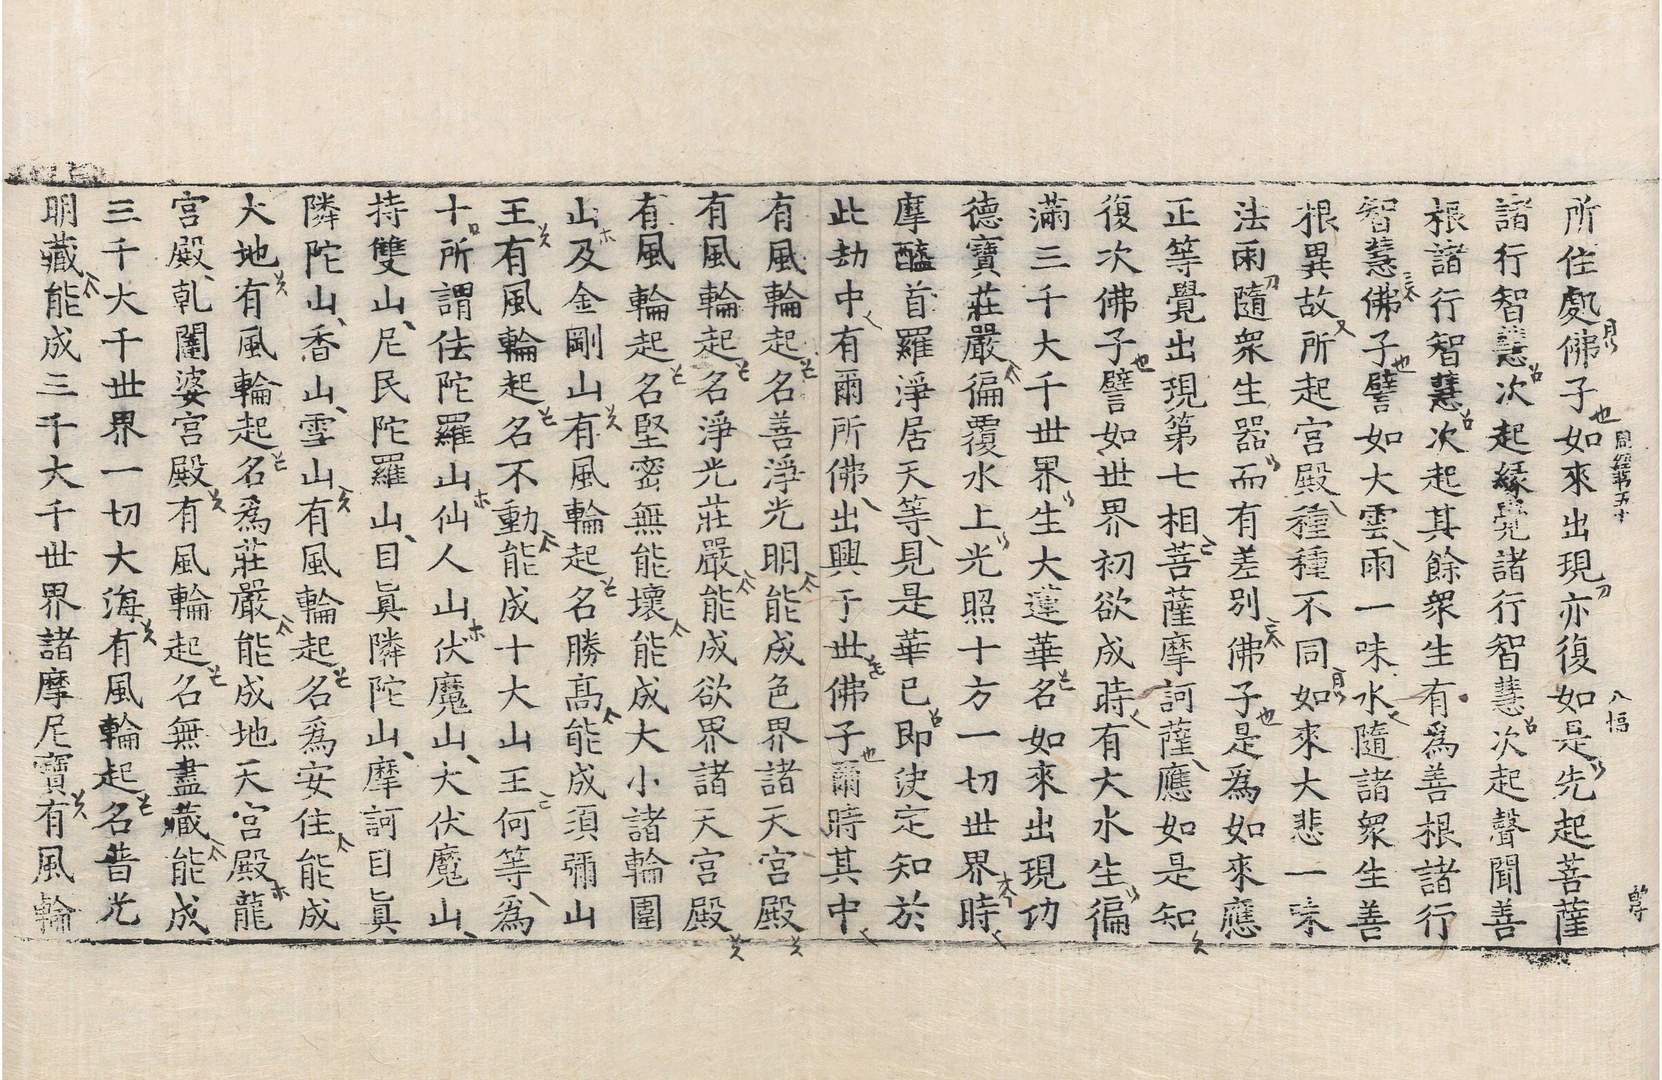 所住處佛子如來出現亦復如是先起菩薩
諸行智慧次起緣覺諸行智慧次起聲聞善
根諸行智慧次起其餘衆生有爲善根諸行
智慧佛子譬如大雲雨一味水隨諸衆生善
根異故所起宮殿種種不同如來大悲一味
法雨隨衆生器而有差別佛子是爲如來應
正等覺出現第七相菩薩摩訶薩應如是知
復次佛子譬如世界初欲成時有大水生徧
滿三千大千世界生大蓮華名如來出現功
德寶莊嚴徧覆水上光照十方一切世界時
摩醯首羅淨居天等見是華已即決定知於
此劫中有爾所佛出興于世佛子爾時其中
有風輪起名善淨光明能成色界諸天宮殿
有風輪起名淨光莊嚴能成欲界諸天宮殿
有風輪起名堅密無能壞能成大小諸輪圍
山及金剛山有風輪起名勝高能成須彌山
王有風輪起名不動能成十大山王何等爲
十所謂佉陀羅山仙人山伏魔山大伏魔山
持雙山尼民陀羅山目眞隣陀山摩訶目眞
隣陀山香山雪山有風輪起名爲安住能成
大地有風輪起名爲莊嚴能成地天宮殿龍
宮殿乾闥婆宮殿有風輪起名無盡藏能成
三千大千世界一切大海有風輪起名普光
明藏能成三千大千世界諸摩尼寶有風輪